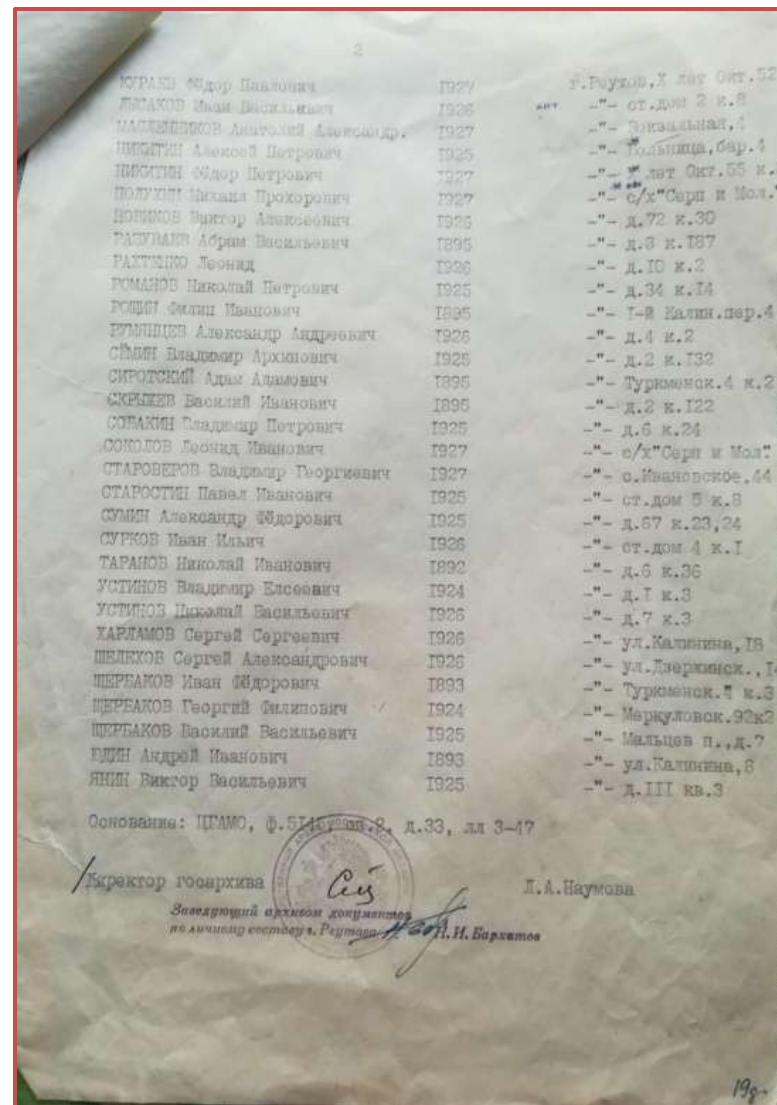 2
КУРАЕВ Фёдор Павлович 1927 г.Реутов,X лет Окт.52
ЛЫСАКОВ Иван Васильевич 1926 -"- ст.дом 2 к.8
МАСЛЕННИКОВ Анатолий Александр. 1927 -"- Вокзальная,4
НИКИТИН Алексей Петрович 1925 -"- Больница,бар.4
НИКИТИН Фёдор Петрович 1927 -"- X лет Окт.55 к.
ПОЛУХИН Михаил Прохорович 1927 -"- с/х"Серп и Мол."
НОВИКОВ Виктор Алексеевич 1926 -"- д.72 к.30
РАЗУВАЕВ Абрам Васильевич 1895 -"- д.3 к.I87
РАХТЕНКО Леонид 1926 -"- д.IO к.2
РОМАНОВ Николай Петрович 1925 -"- д.34 к.I4
РОЩИН Филип Иванович I895 -"- I-й Калин.пер.4
РУМЯНЦЕВ Александр Андреевич I926 -"- д.4 к.2
СЁМИН Владимир Архипович I925 -"- д.2 к.I32
СИРОТСКИЙ Адам Адамович I895 -"- Туркменск.4 к.2
СКРЫЖЕВ Василий Иванович I895 -"- д.2 к.I22
СОБАКИН Владимир Петрович I925 -"- д.6 к.24
СОКОЛОВ Леонид Иванович I927 -"- с/х"Серп и Мол."
СТАРОВЕРОВ Владимир Георгиевич I927 -"- с.Ивановское.44
СТАРОСТИН Павел Иванович I925 -"- ст.дом 5 к.8
СУМИН Александр Фёдорович I925 -"- д.67 к.23,24
СУРКОВ Иван Ильич I926 -"- ст.дом 4 к.I
ТАРАНОВ Николай Иванович I892 -"- д.6 к.36
УСТИНОВ Владимир Елсеевич I924 -"- д.I к.3
УСТИНОВ Николай Васильевич I926 -"- д.7 к.3
ХАРЛАМОВ Сергей Сергеевич I926 -"- ул.Калинина,I8
ШЕЛЕХОВ Сергей Александрович I926 -"- ул.Дзержинск.,I4
ЩЕРБАКОВ Иван Фёдорович I893 -"- Туркменск. к.3
ЩЕРБАКОВ Георгий Филипович I924 -"- Меркуловск.92к2
ЩЕРБАКОВ Василий Васильевич I925 -"- Мальцев п.,д.7
ЮДИН Андрей Иванович I893 -"- ул.Калинина,8
ЯНИН Виктор Васильевич I925 -"- д.III кв.3
Основание: ЦГАМО, оп.2, д.33, лл 3-47
Директор госархива Л.А.Наумова
Заведующий архивом документов
по личному составу г. Реутова Н.И. Бархатов